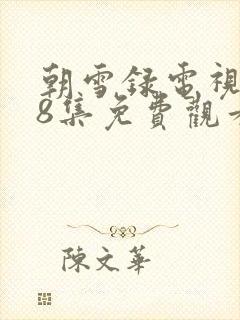 朝雪録電視
8集免費觀
陳文華